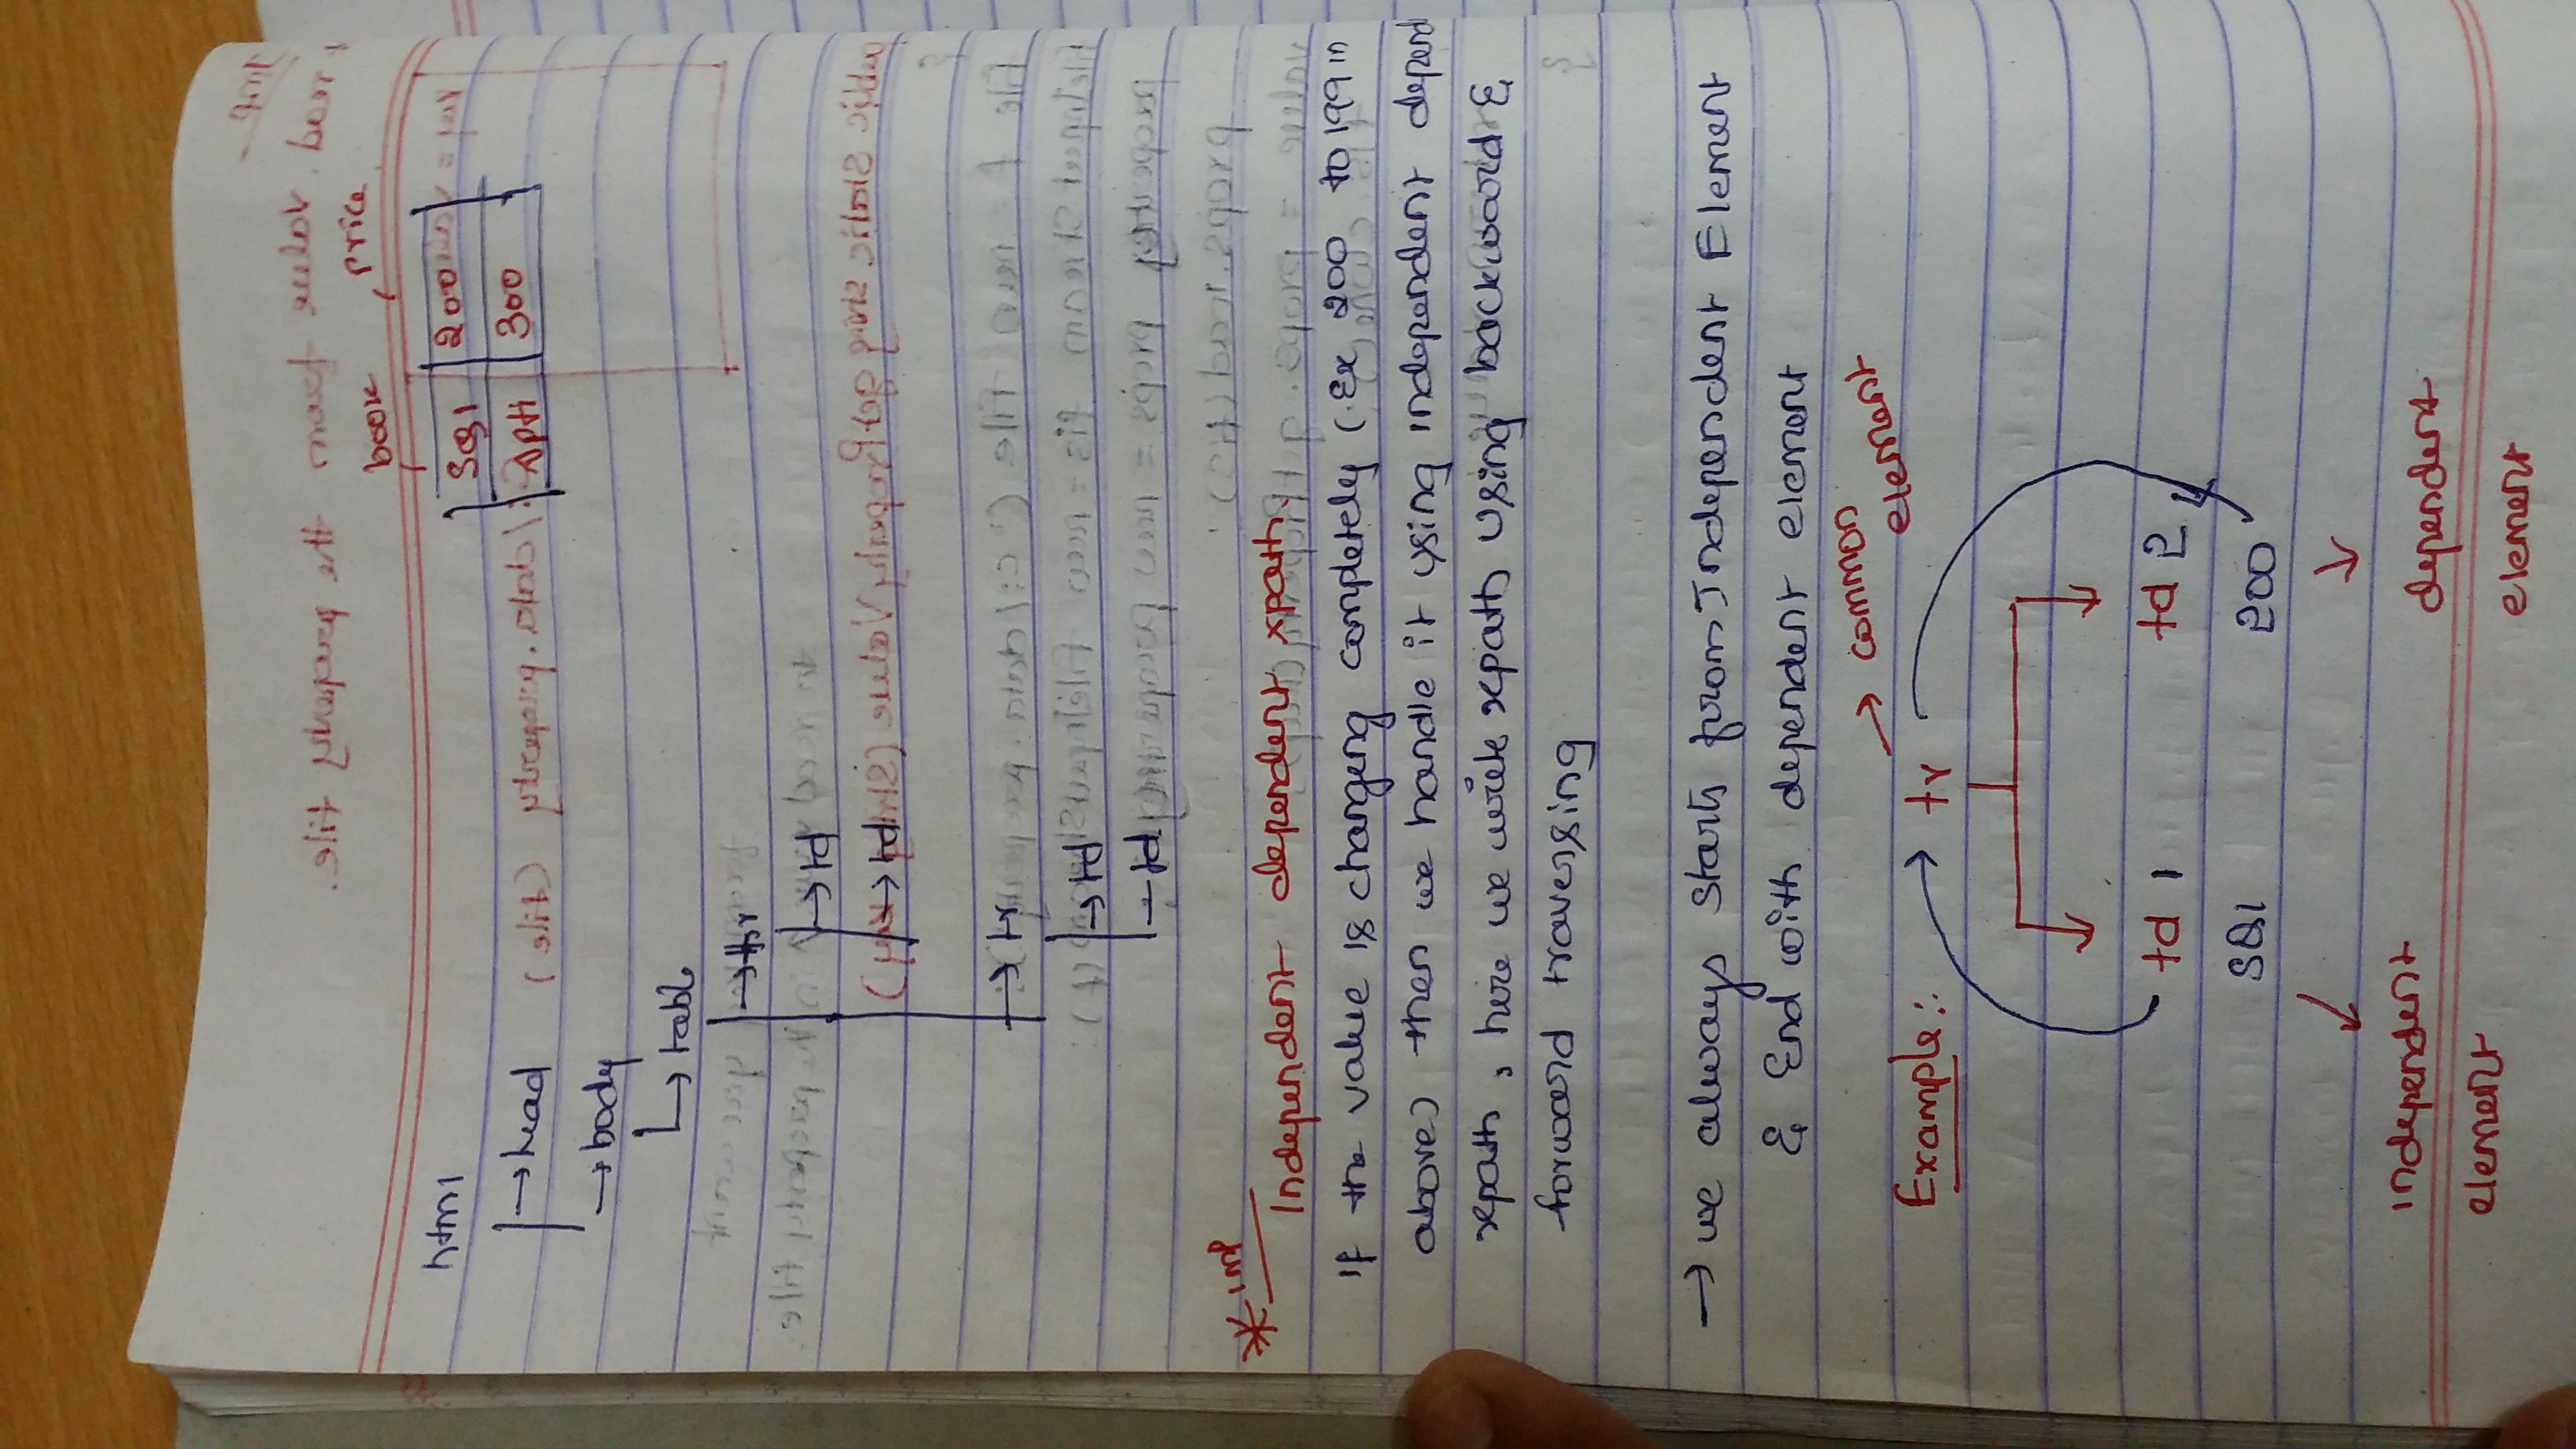 book price
html
SQl 200
→ head
Apti 300
→ body
→ table
→ tr
→ td
→ td
→ tr
→ td
→ td
* imp
Independent dependent xpath.
If the value is changing completely (Ex 200 to 199 in
above) then we handle it using independent depend
xpath, here we write xpath using backward &
forward traversing
→ we always starts from Independent Element
& End with dependent element
→ common
element
Example:
tr
td 1 td 2
SQl 200
independent
dependent
element
element